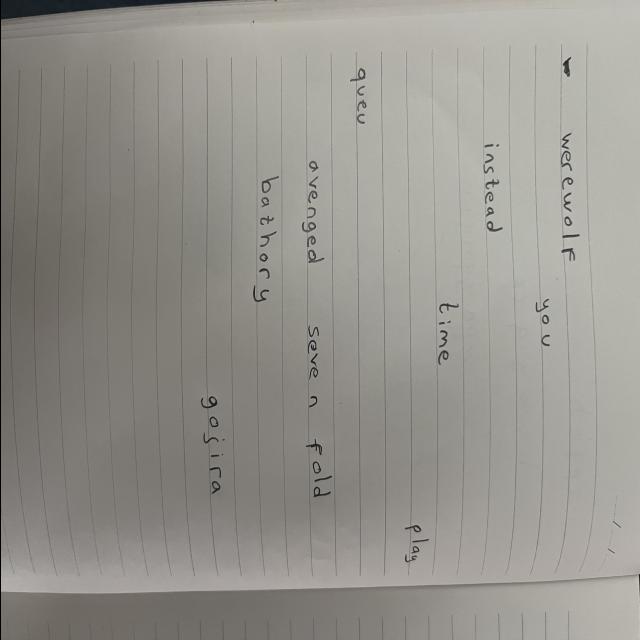 werewolf
you
instead
time
play
queu
avenged seven fold
bathory
gojira